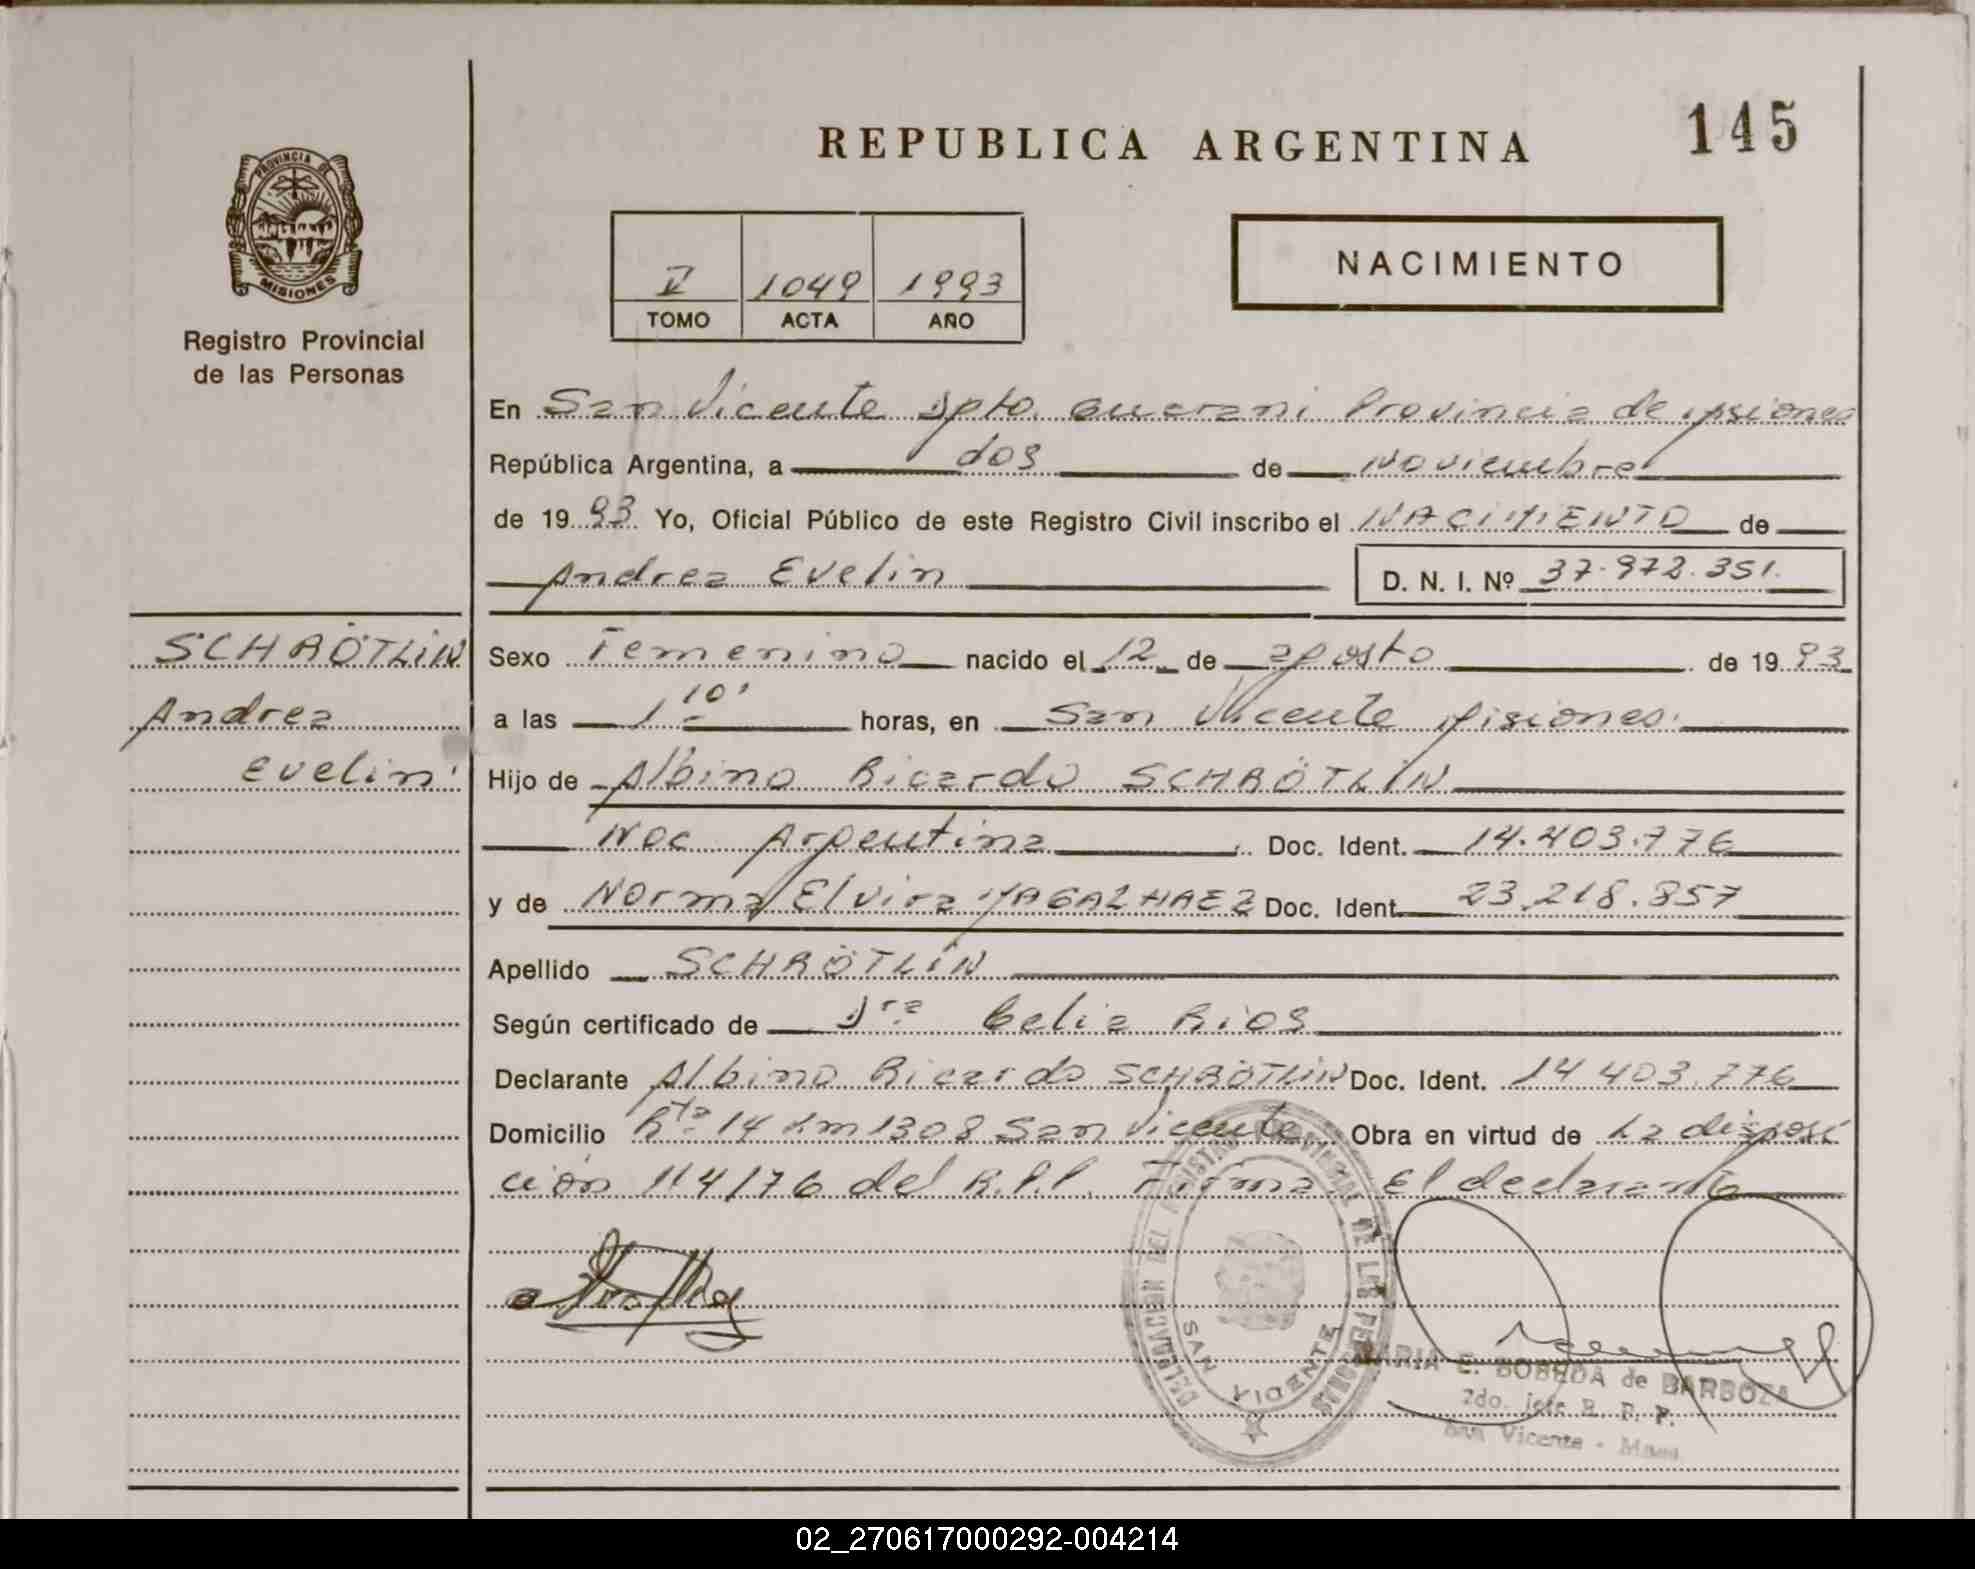 REPUBLICA ARGENTINA
145
PROVINCIA DE
MISIONES
Registro Provincial
de las Personas
V 1049 1993
TOMO ACTA AÑO
NACIMIENTO
En San Vicente Dpto. Guarani Provincia de Misiones
República Argentina, a dos de Noviembre
de 1993 Yo, Oficial Público de este Registro Civil inscribo el NACIMIENTO de
Andrea Evelin D. N. I. Nº 37.972.351.
SCHRÖTLIN
Andrea
Evelin
Sexo Femenino nacido el 12 de agosto de 1993
a las 1 10' horas, en San Vicente Misiones.
Hijo de Albino Ricardo SCHRÖTLIN
Nac Argentina Doc. Ident. 14.403.776
y de Norma Elvira MAGALHAEZ Doc. Ident. 23.218.857
Apellido SCHRÖTLIN
Según certificado de Dra Celia Rios
Declarante Albino Ricardo SCHRÖTLIN Doc. Ident. 14 403.776
Domicilio Rta 14 Km 1308 San Vicente Obra en virtud de La disposi
ción 114/76 del R.P.P. Firma El declarante
DELEGACION DEL REGISTRO PROVINCIAL DE LAS PERSONAS
SAN VICENTE
MARIA E. BOBEDA de BARBOZA
2do. jefe R. P. P.
San Vicente - Mnes.
02_270617000292-004214